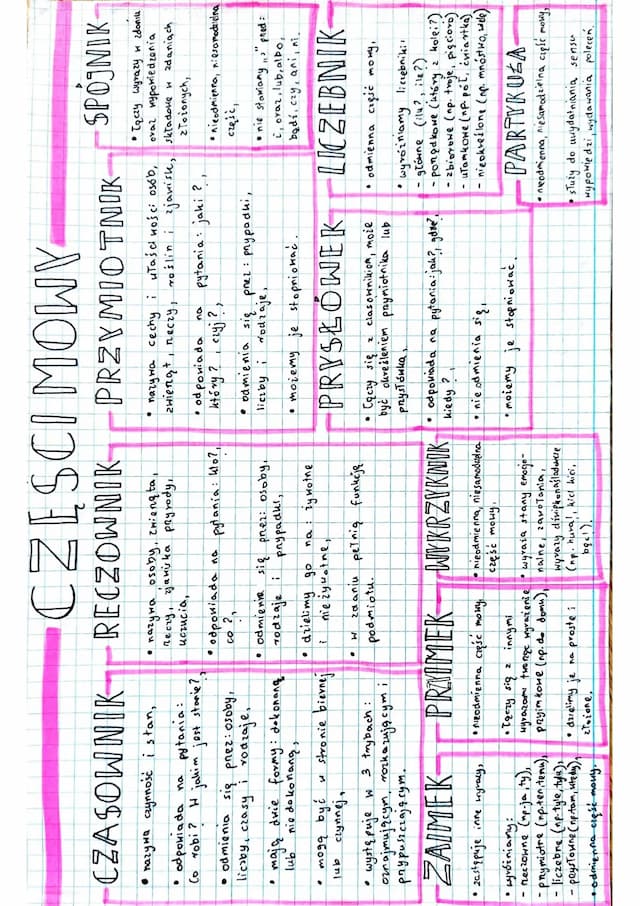 CZĘŚCI MOWY
CZASOWNIK
• nazywa czynność i stan,
• odpowiada na pytania:
co robi? W jakim jest stanie?,
• odmienia się przez: osoby,
liczby, czasy i rodzaje,
• mają dwie formy: dokonaną
lub niedokonaną,
• mogą być w stronie biernej
lub czynnej,
• występuje w 3 trybach:
oznajmującym, rozkazującym i
przypuszczającym.
RECZOWNIK
• nazywa osoby, zwierzęta,
rzeczy, zjawiska przyrody,
uczucia,
• odpowiada na pytania: kto?,
co?,
• odmienia się przez: osoby,
rodzaje i przypadki,
• dzielimy go na: żywotne
i nieżywotne,
• w zdaniu pełnią funkcję
podmiotu.
PRZYMIOTNIK
• nazywa cechy i właściwości osób,
zwierząt, rzeczy, roślin i zjawisk,
• odpowiada na pytania: jaki?,
który?, czyj?,
• odmienia się przez: przypadki,
liczby i rodzaje,
• możemy je stopniować.
SPÓJNIK
• łączy wyrazy w zdaniu
oraz wypowiedzenia
składowe w zdaniach
złożonych,
• nieodmienna, niesamodzielna
część,
• nie stawiamy „," przed:
i, oraz, lub, albo,
bądź, czy, ani, ni.
ZAIMEK
• zastępuje inne wyrazy,
• wyróżniamy:
- rzeczowne (np. ja, ty),
- przymiotne (np. ten, temu),
- liczebne (np. tyle, tylu),
- przysłowne (np. tam, wtedy),
• odmienna część mowy.
PRZYIMEK
• nieodmienna część mowy,
• łączy się z innymi
wyrazami tworząc wyrażenie
przyimkowe (np. do domu),
• dzielimy je na proste i
złożone.
WYKRZYKNIK
• nieodmienna, niesamodzielna
część mowy,
• wyraża stany emocjo-
nalne, zawołania,
wyrazy dźwiękonaśladowcze
(np. hura!, kici kici,
bęc!).
PRYSŁÓWEK
• łączy się z czasownikiem, może
być określeniem przymiotnika lub
przysłówka,
• odpowiada na pytania: jak?, gdzie?,
kiedy?,
• nie odmienia się,
• możemy je stopniować.
LICZEBNIK
• odmienna część mowy,
• wyróżniamy liczebniki:
- główne (ilu?, ile?)
- porządkowe (który z kolei?)
- zbiorowe (np. troje, pięcioro)
- ułamkowe (np. pół, ćwiartka)
- nieokreślone (np. mnóstwo, wiele)
PARTYKUŁA
• nieodmienna, niesamodzielna część mowy,
• służy do uwydatniania sensu
wypowiedzi, wydawania poleceń.